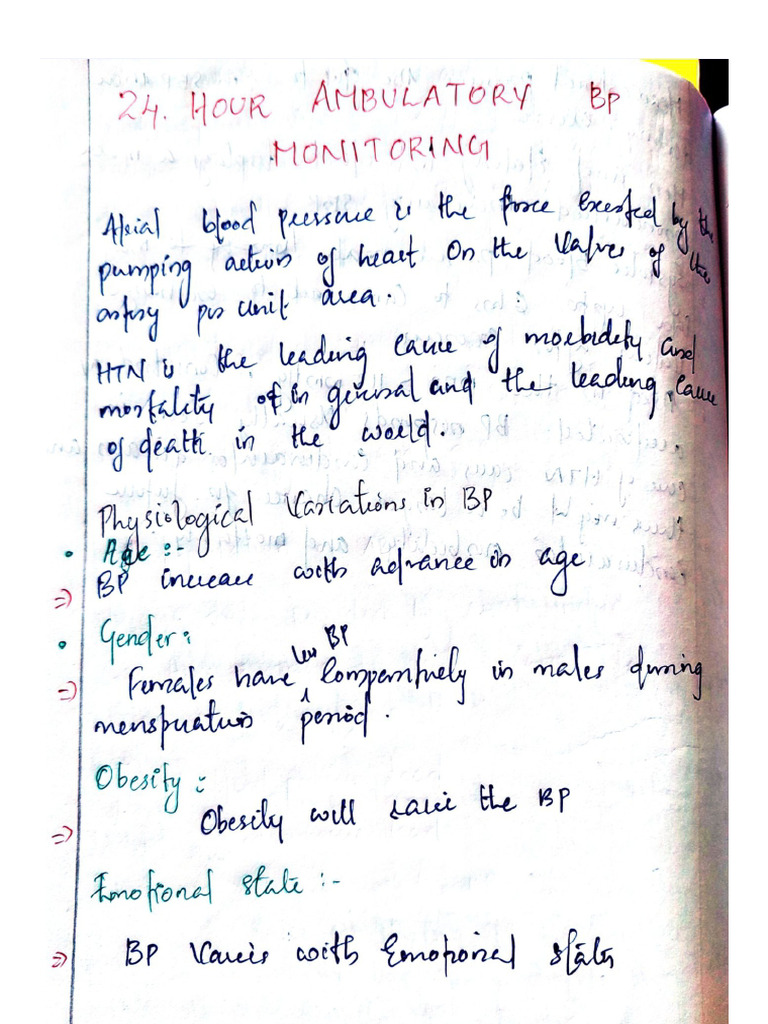 24. HOUR AMBULATORY BP
MONITORING
blood pressure is the force Exerted by the
pumping action of heart On the of the
artery per unit area.
HTN is the leading cause of morbidity and
mortality in general and the leading cause
of death in the world.
Physiological Variations in BP
• Age :-
⇒ BP increase with advance in age
• Gender:
less BP
⇒ Females have ^ Comparitively in males during
period.
Obesity :-
⇒ Obesity will the BP
Emotional state :-
⇒ BP Varies with Emotional state